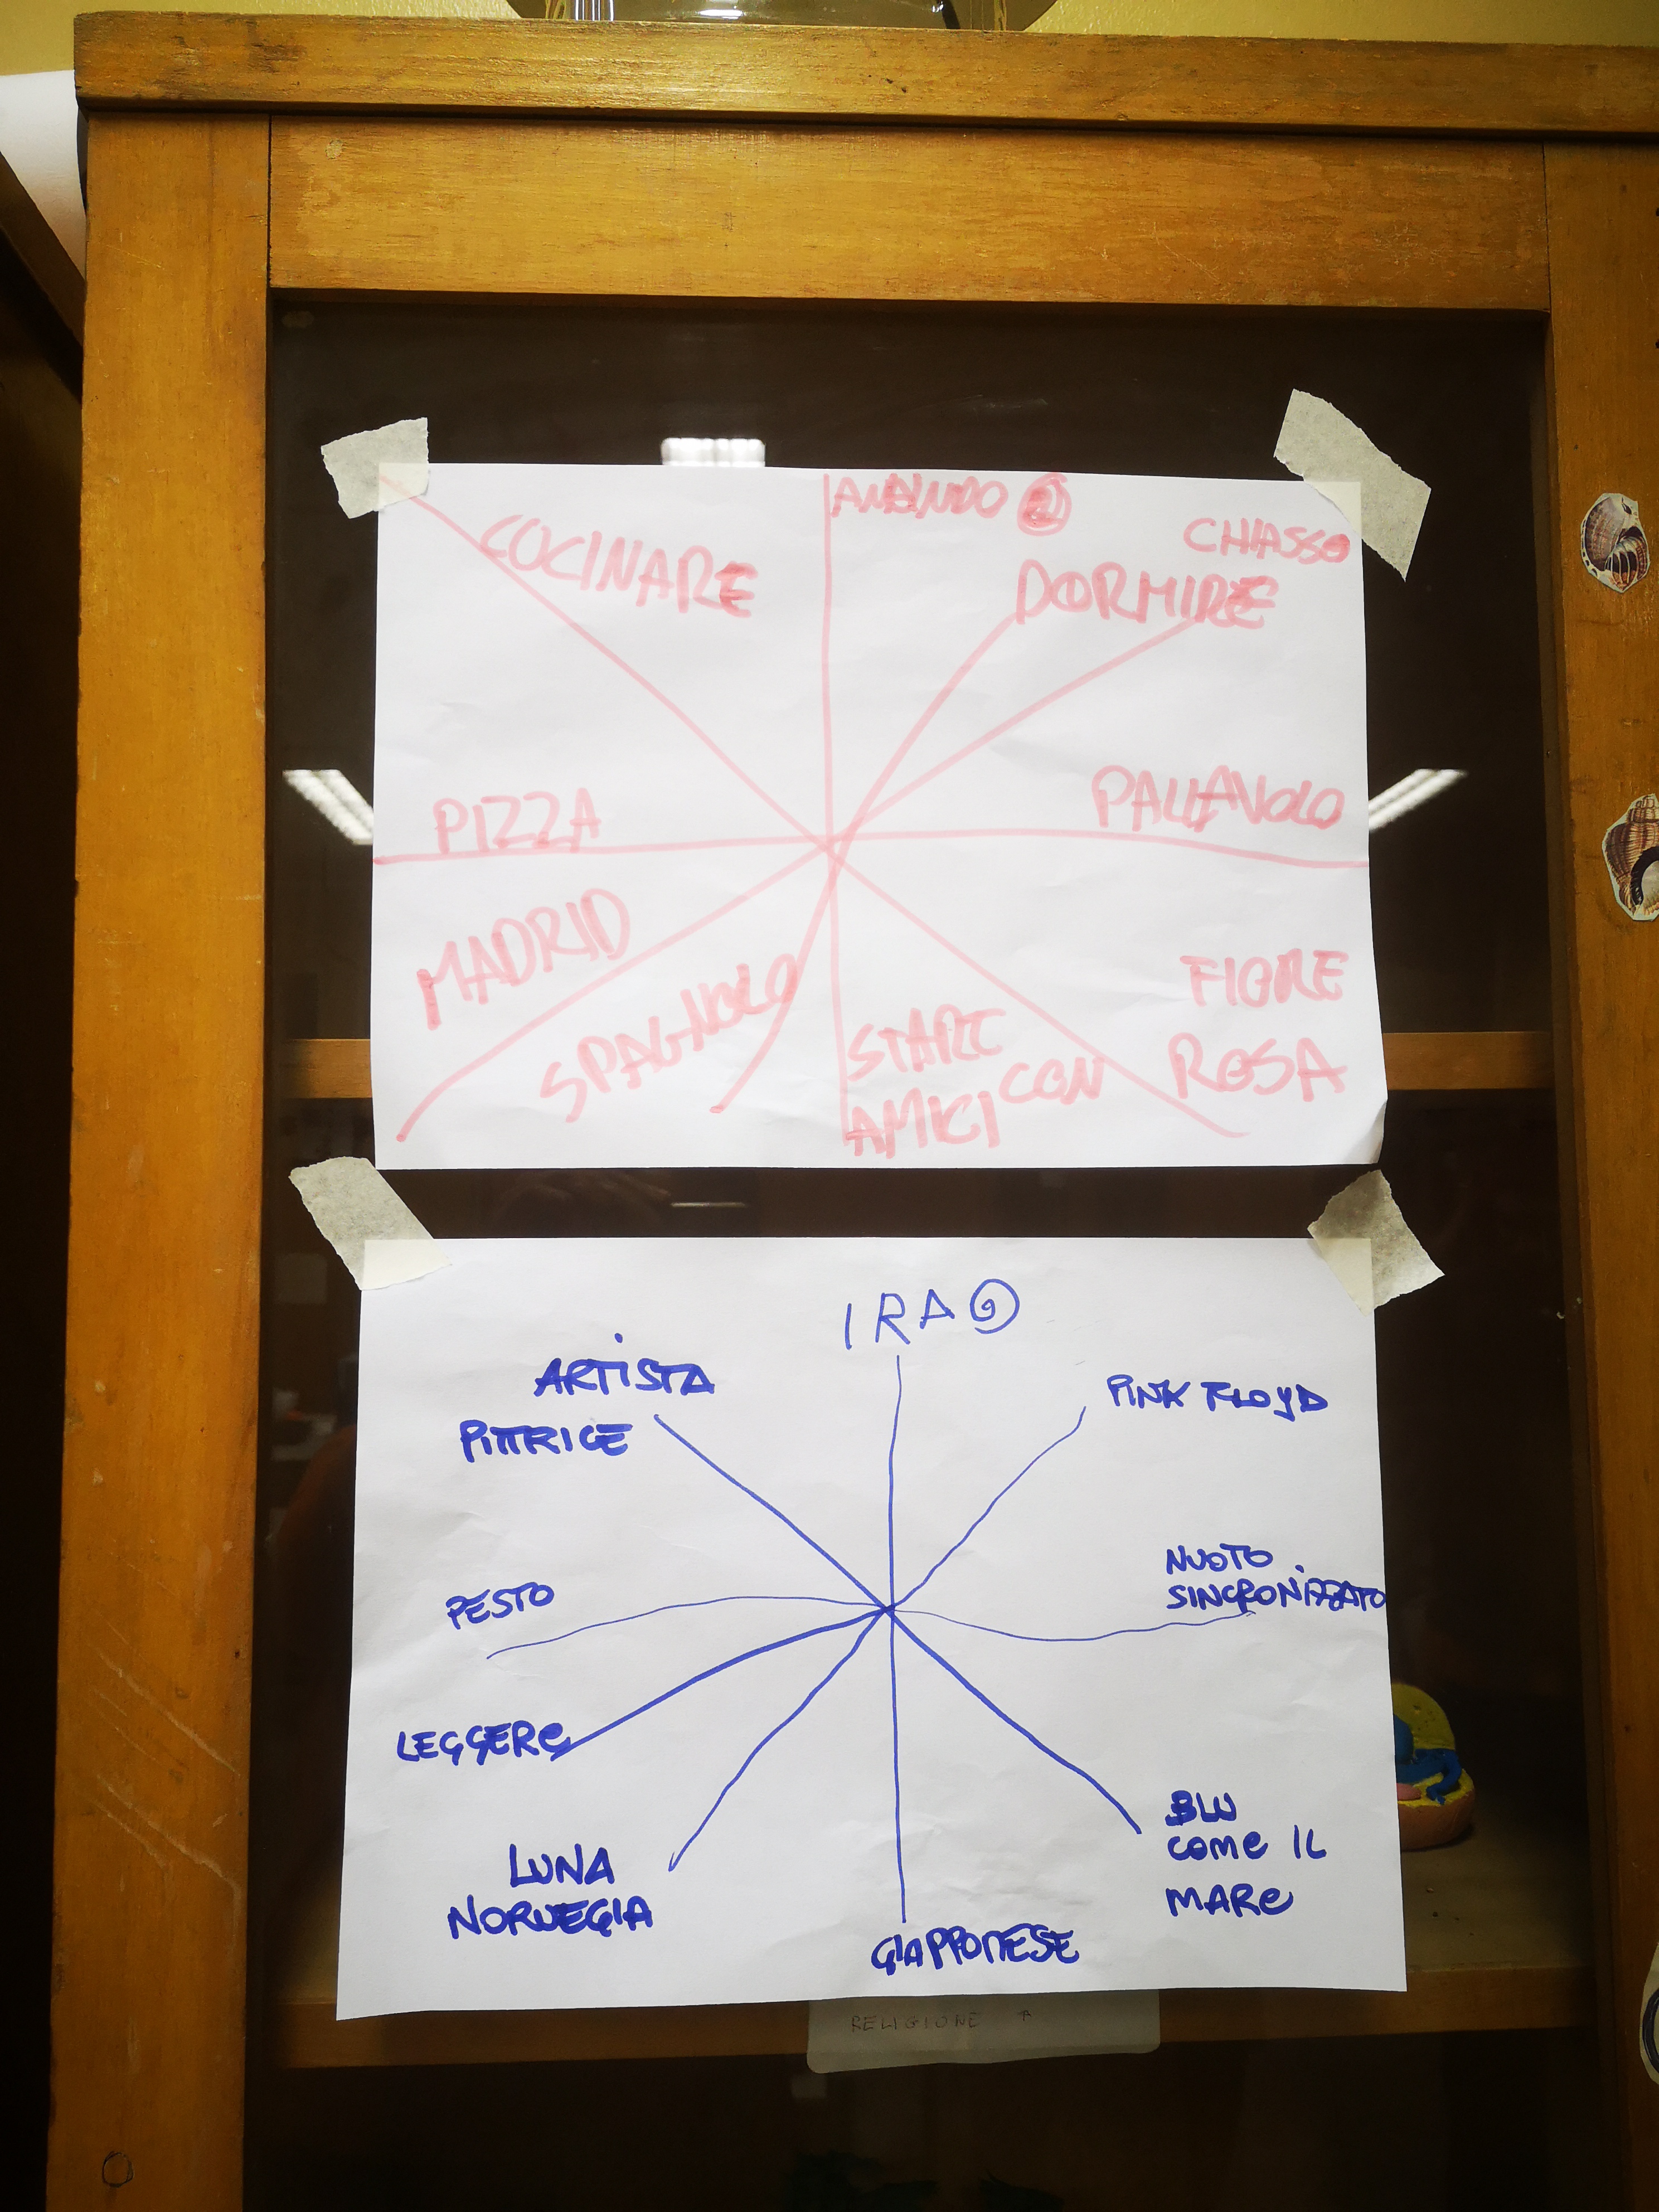 COCINARE
CHIASSO
DORMIRE
PIZZA
PALLAVOLO
MADRID
SPAGNOLO
STARE
CON
AMICI
FIORE
ROSA
IRA
ARTISTA
PITTRICE
PINK FLOYD
PESTO
NUOTO
SINCRONIZZATO
LEGGERE
LUNA
NORVEGIA
BLU
COME IL
MARE
GIAPPONESE
RELIGIONE